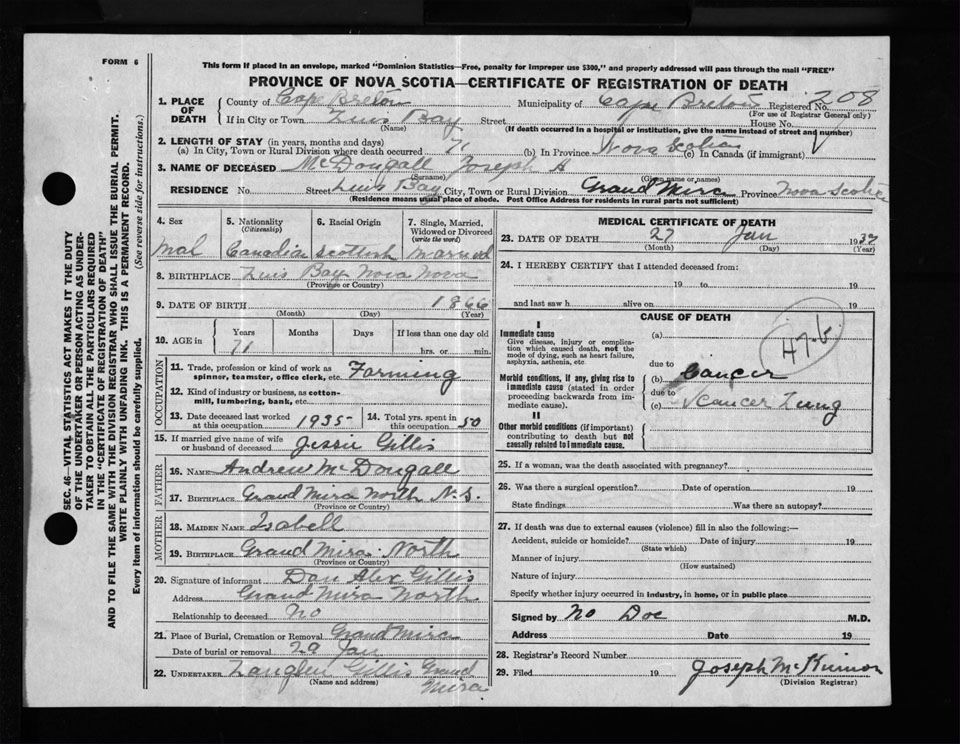 FORM 6
This form if placed in an envelope, marked "Dominion Statistics—Free, penalty for improper use $300," and properly addressed will pass through the mail "FREE"
PROVINCE OF NOVA SCOTIA—CERTIFICATE OF REGISTRATION OF DEATH
SEC. 46—VITAL STATISTICS ACT MAKES IT THE DUTY
OF THE UNDERTAKER OR PERSON ACTING AS UNDER-
TAKER TO OBTAIN ALL THE PARTICULARS REQUIRED
IN THE "CERTIFICATE OF REGISTRATION OF DEATH"
AND TO FILE THE SAME WITH THE DIVISION REGISTRAR WHO SHALL ISSUE THE BURIAL PERMIT.
WRITE PLAINLY WITH UNFADING INK. THIS IS A PERMANENT RECORD.
Every item of information should be carefully supplied. (See reverse side for instructions.)
1. PLACE OF DEATH County of Cap Breton Municipality of Cape Breton Registered No. 208
(For use of Registrar General only)
If in City or Town Luis Bay Street House No.
(Name) (If death occurred in a hospital or institution, give the name instead of street and number)
2. LENGTH OF STAY (in years, months and days)
(a) In City, Town or Rural Division where death occurred 71 (b) In Province Nova Scotia (c) In Canada (if immigrant)
3. NAME OF DECEASED McDougall Joseph A
(Surname) (Given name or names)
RESIDENCE No. Street Luis Bay City, Town or Rural Division Grand Mira Province Nova Scotia
(Residence means usual place of abode. Post Office Address for residents in rural parts not sufficient)
4. Sex 5. Nationality 6. Racial Origin 7. Single, Married,
(Citizenship) Widowed or Divorced
(write the word)
Mal Canadian Scottish Married
8. BIRTHPLACE Luis Bay Nova Nova
(Province or Country)
9. DATE OF BIRTH 1866
(Month) (Day) (Year)
10. AGE in Years Months Days If less than one day old
71 hrs. or min.
OCCUPATION
11. Trade, profession or kind of work as
spinner, teamster, office clerk, etc. Farming
12. Kind of industry or business, as cotton-
mill, lumbering, bank, etc.
13. Date deceased last worked
at this occupation 1935 14. Total yrs. spent in
this occupation 50
15. If married give name of wife
or husband of deceased Jessie Gillis
FATHER
16. NAME Andrew McDougall
17. BIRTHPLACE Grand Mira North N.S.
(Province or Country)
MOTHER
18. MAIDEN NAME Isabell
19. BIRTHPLACE Grand Mira North
(Province or Country)
20. Signature of informant Dan Alex Gillis
Address Grand Mira North
Relationship to deceased no
21. Place of Burial, Cremation or Removal Grand Mira
Date of burial or removal 29 Jan
22. UNDERTAKER Gillis Grand
(Name and address) Mira
MEDICAL CERTIFICATE OF DEATH
23. DATE OF DEATH 27 Jan 1937
(Month) (Day) (Year)
24. I HEREBY CERTIFY that I attended deceased from:
19 to 19
and last saw h alive on 19
CAUSE OF DEATH
I
Immediate cause (a)
Give disease, injury or complica-
tion which caused death, not the
mode of dying, such as heart failure,
asphyxia, asthenia, etc. due to
47-b
Morbid conditions, if any, giving rise to (b) Cancer
immediate cause (stated in order
proceeding backwards from im- due to
mediate cause). (c) Cancer Lung
II
Other morbid conditions (if important)
contributing to death but not
causally related to immediate cause.
25. If a woman, was the death associated with pregnancy?
26. Was there a surgical operation? Date of operation 19
State findings Was there an autopsy?
27. If death was due to external causes (violence) fill in also the following:—
Accident, suicide or homicide? Date of injury 19
(State which)
Manner of injury
(How sustained)
Nature of injury
Specify whether injury occurred in industry, in home, or in public place
Signed by No Doc M.D.
Address Date 19
28. Registrar's Record Number
29. Filed 19 Joseph McKinnon
(Division Registrar)